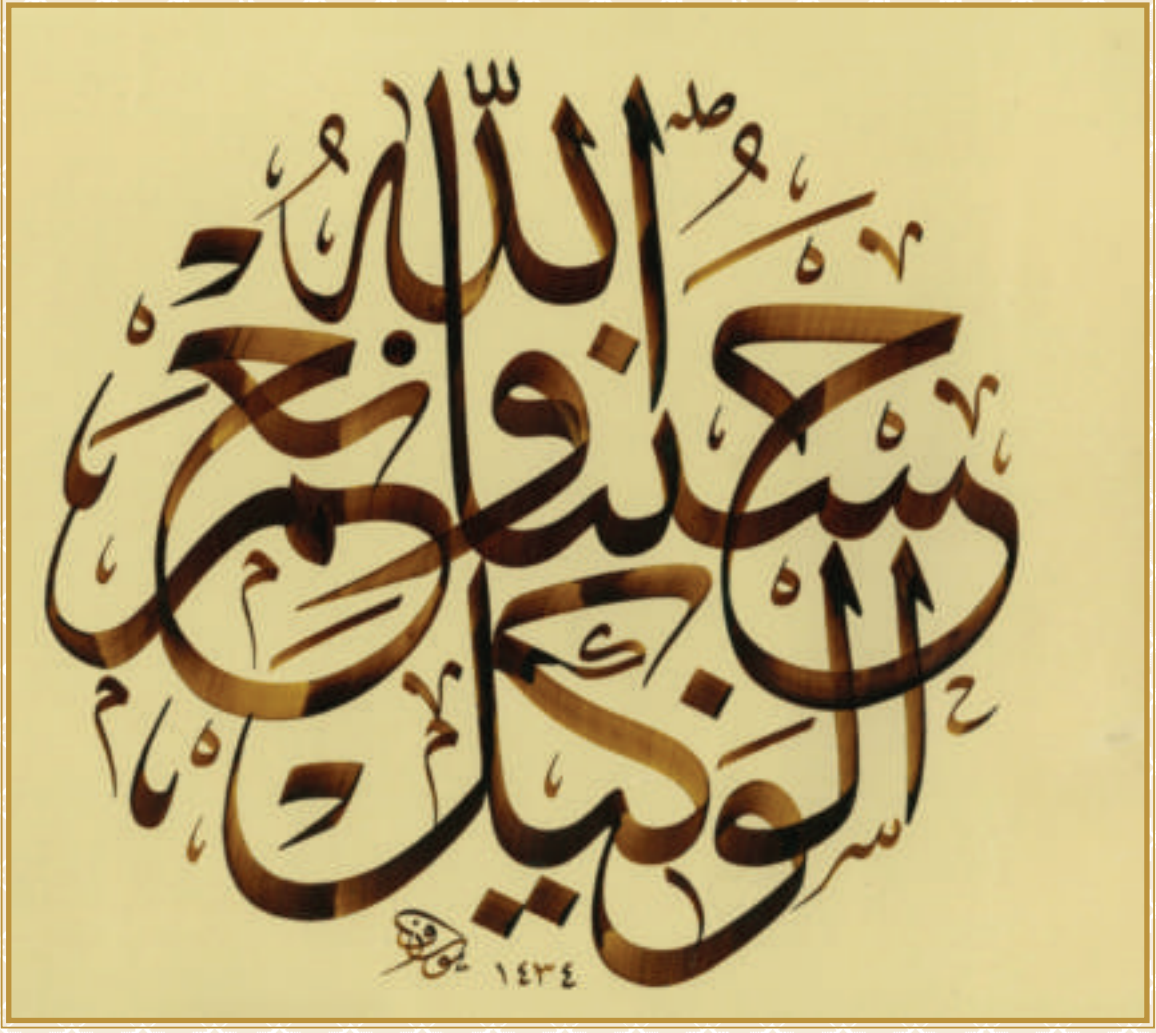 حَسْبُنَا اللّٰهُ وَنِعْمَ الْوَكِيلُ
١٤٣٤